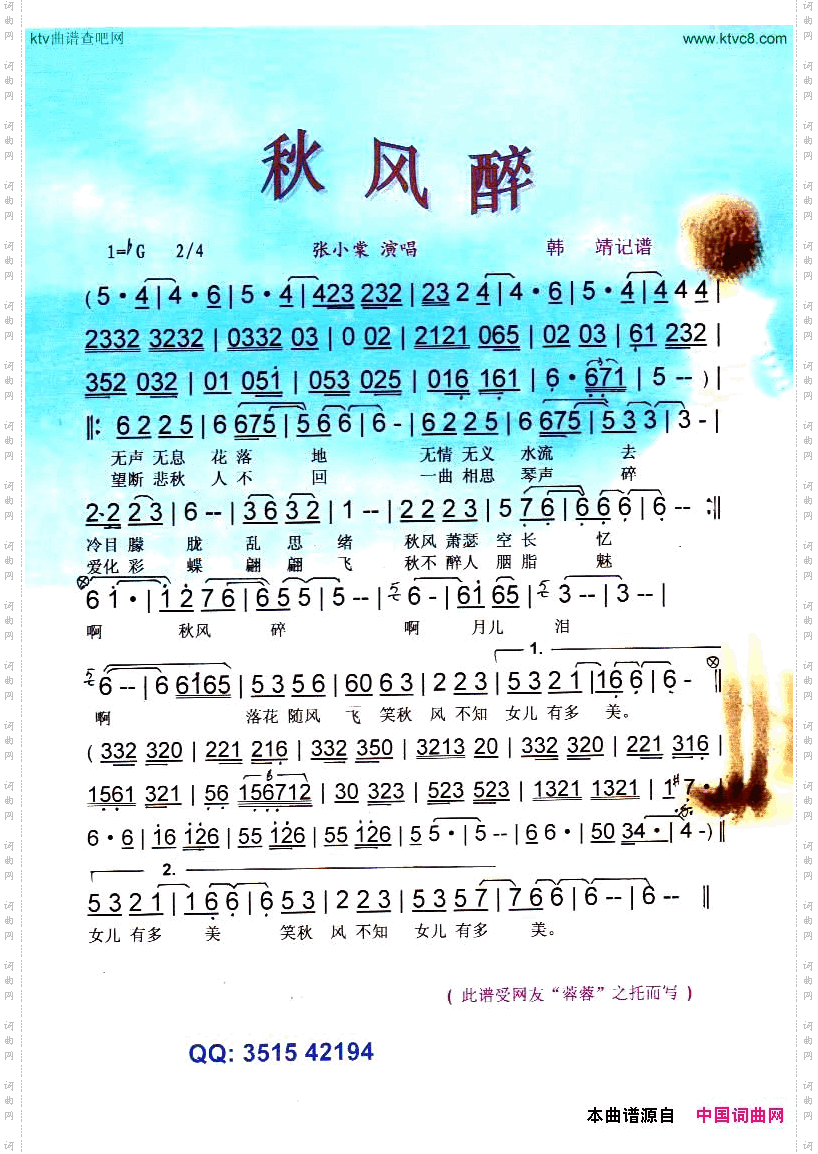 ktv曲谱查吧网 www.ktvc8.com
秋风醉
1=♭G 2/4 张小棠 演唱 韩 靖记谱
(5·4|4·6|5·4|423 232|23 2 4|4·6|5·4|4 4 4|
2332 3232|0332 03|0 02|2121 065|02 03|61 232|
352 032|01 051|053 025|016 161|6·671|5--)|
‖:6 2 2 5|6 675|5 6 6|6-|6 2 2 5|6 675|5 3 3|3-|
无声 无息 花 落 地 无情 无义 水流 去
望断 悲秋 人 不 回 一曲 相思 琴声 碎
2·2 2 3|6--|3 6 3 2|1--|2 2 2 3|5 7 6|6 6 6|6--:‖
冷目 朦 胧 乱 思 绪 秋风 萧瑟 空 长 忆
爱化 彩 蝶 翩 翩 飞 秋不 醉人 胭 脂 魅
6 1·|1 2 7 6|6 5 5|5--|6-|61 65|3--|3--|
啊 秋风 碎 啊 月儿 泪
1.
6--|6 6165|5 3 5 6|60 6 3|2 2 3|5 3 2 1|1 6 6|6-‖
啊 落花 随风 飞 笑秋 风 不知 女儿 有多 美。
(332 320|221 216|332 350|3213 20|332 320|221 316|
1561 321|56 156712|30 323|523 523|1321 1321|1 #7·|
6·6|16 126|55 126|55 556|5 5·|5--|6 6·|50 34·|4-)‖
2.
5 3 2 1|1 6 6|6 5 3|2 2 3|5 3 5 7|7 6 6|6--|6--‖
女儿 有多 美 笑秋 风 不知 女儿 有多 美。
(此谱受网友“蓉蓉”之托而写)
QQ: 3515 42194
本曲谱源自 中国词曲网